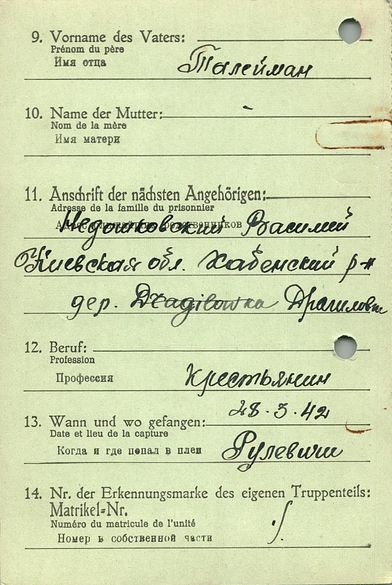 9. Vorname des Vaters:
Prénom du père
Имя отца
Талейман
10. Name der Mutter: -
Nom de la mère
Имя матери
11. Anschrift der nächsten Angehörigen:
Adresse de la famille du prisonnier
Василий
Киевская обл. Хабенский р-н
дер.
12. Beruf:
Profession
Профессия
Крестьянин
28.3.42
13. Wann und wo gefangen:
Date et lieu de la capture
Когда и где попал в плен
Рулевичи
14. Nr. der Erkennungsmarke des eigenen Truppenteils:
Matrikel-Nr.
Numéro du matricule de l'unité
Номер в собственной части